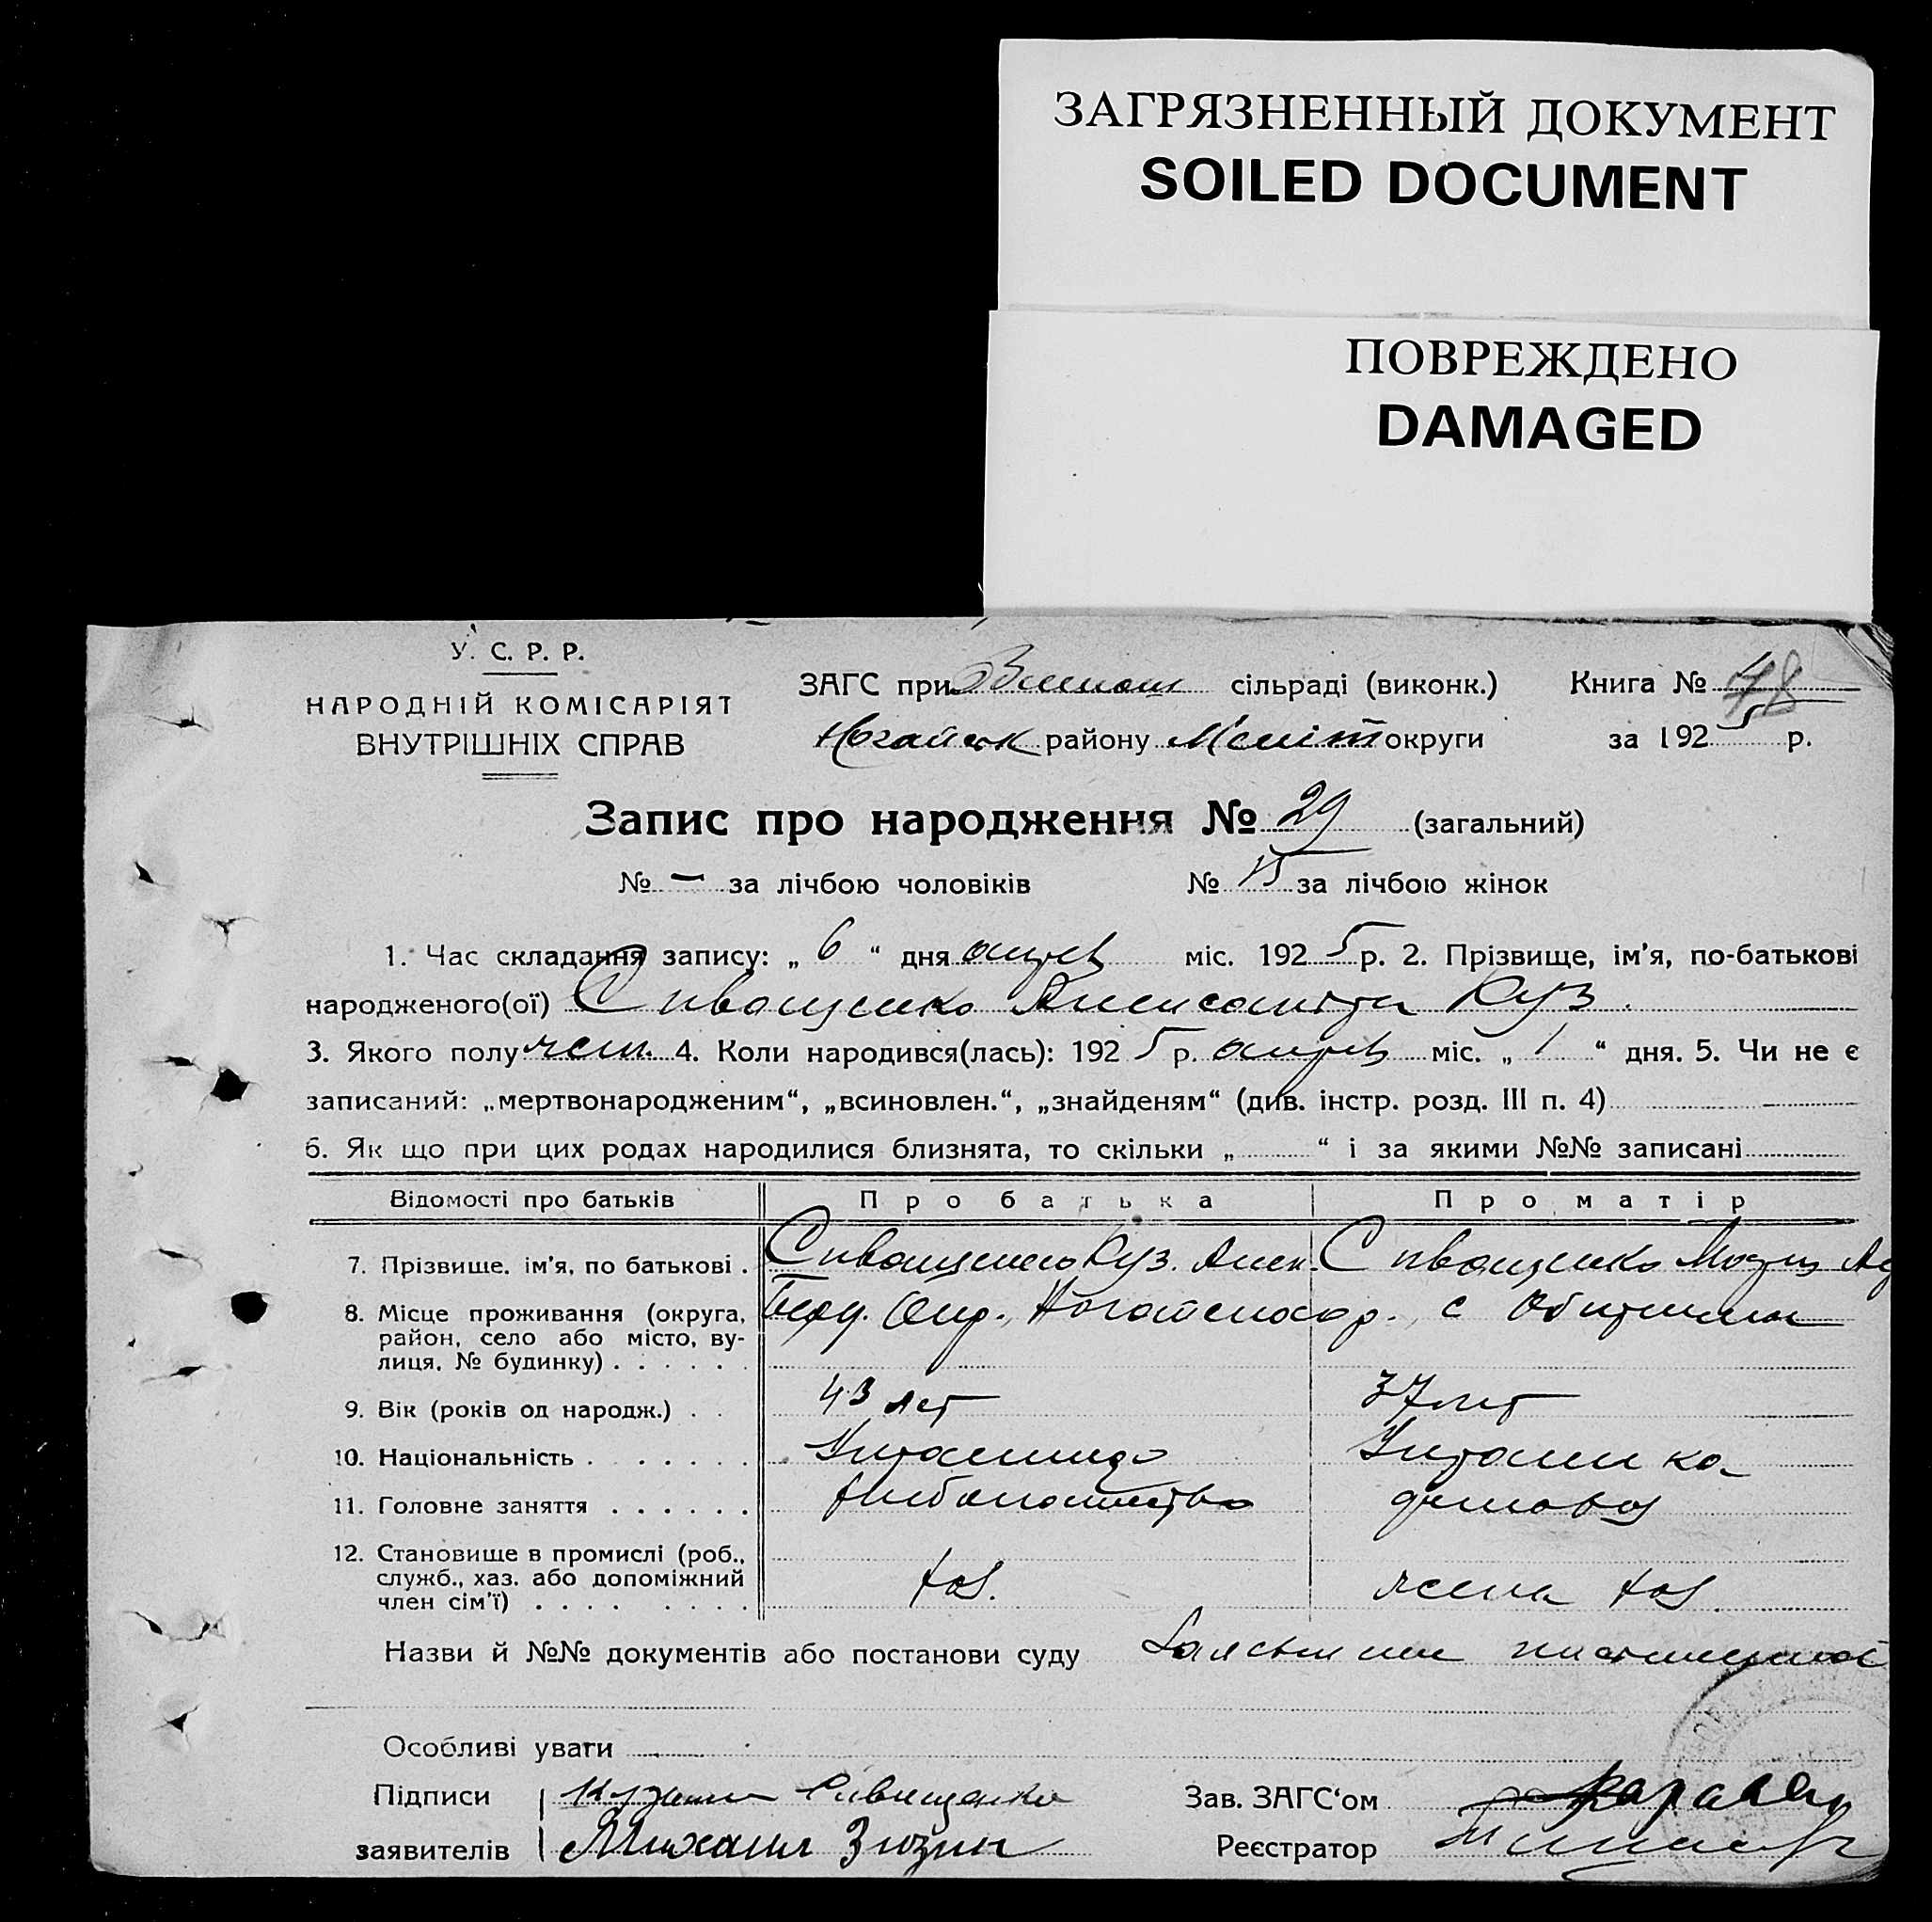 ЗАГРЯЗНЕННЫЙ ДОКУМЕНТ
SOILED DOCUMENT
ПОВРЕЖДЕНО
DAMAGED
У. С. Р. Р.
НАРОДНІЙ КОМІСАРІЯТ
ВНУТРІШНІХ СПРАВ
ЗАГС при сільраді (виконк.)
Ногайськ району Меліт округи
Книга № 48
за 1925 р.
Запис про народження № 29 (загальний)
№ – за лічбою чоловіків № 15 за лічбою жінок
1. Час складання запису: „ 6 “ дня міс. 1925 р. 2. Прізвище, ім'я, по-батькові
народженого(ої) Сиващенко Куз.
3. Якого полу жен. 4. Коли народився(лась): 1925 р. міс. „ 1 “ дня. 5. Чи не є
записаний: „мертвонародженим“, „всиновлен.“, „знайденям“ (див. інстр. розд. III п. 4)
6. Як що при цих родах народилися близнята, то скільки „ “ і за якими №№ записані
Відомості про батьків Про батька Про матір
7. Прізвище, ім'я, по батькові . Сиващенко Куз. Алек. Сиващенко
8. Місце проживання (округа, район, село або місто, ву- лиця, № будинку) . . . . . . Окр., с
9. Вік (років од народж.) . . 43 лет 37 лет
10. Національність . . . . . . .
11. Головне заняття . . . . . . хлебопашество
12. Становище в промислі (роб., служб., хаз. або допоміжний член сім'ї) . . . . . . . . хоз. жена хоз.
Назви й №№ документів або постанови суду
Особливі уваги
Підписи Кузьма Сиващенко
заявителів Михаил Зюзин
Зав. ЗАГС'ом
Реєстратор